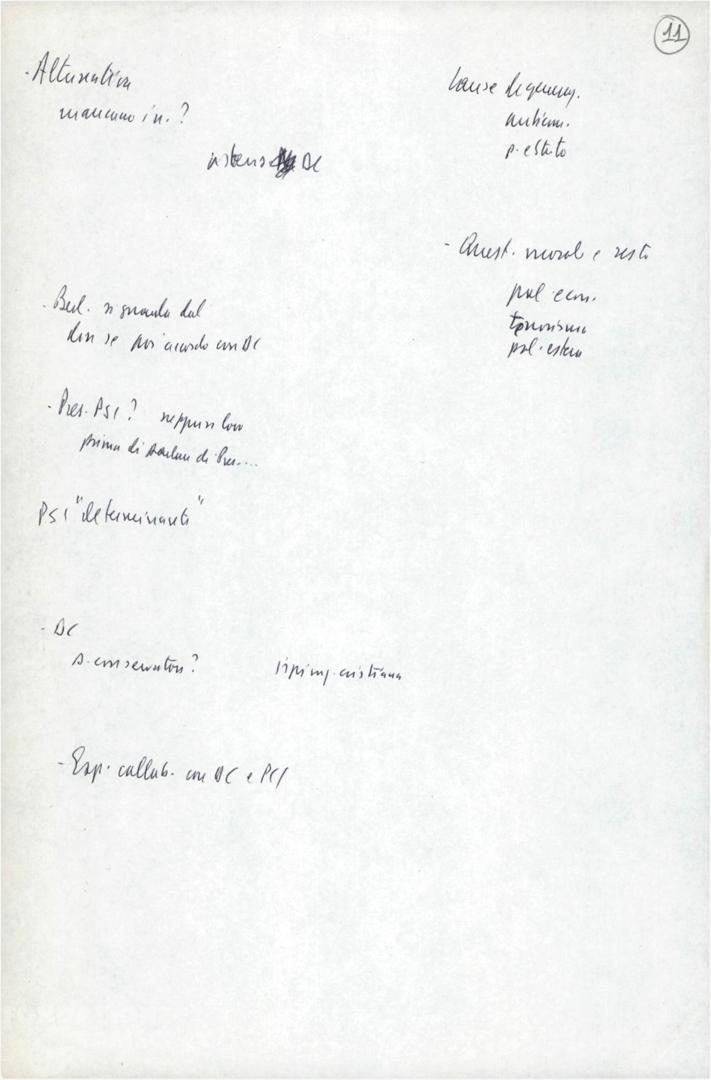 11
- Alternativa
mancano in. ?
DC
Cause degener.
p. e stato
- Quest. moral e resto
pol econ.
terrorismo
pol. estera
- Berl. riguarda dal
dire se poi accordo con DC
- Pres. PSI ? neppure loro
prima di parlare di Pres....
PSI "determinante"
- DC
p. conservatore ?
cristiana
- Esp. collab. con DC e PCI